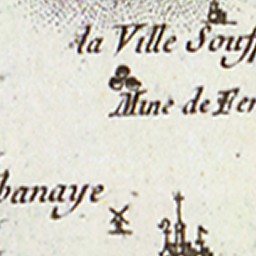 la Ville Souff
Mine de Fer
banaye